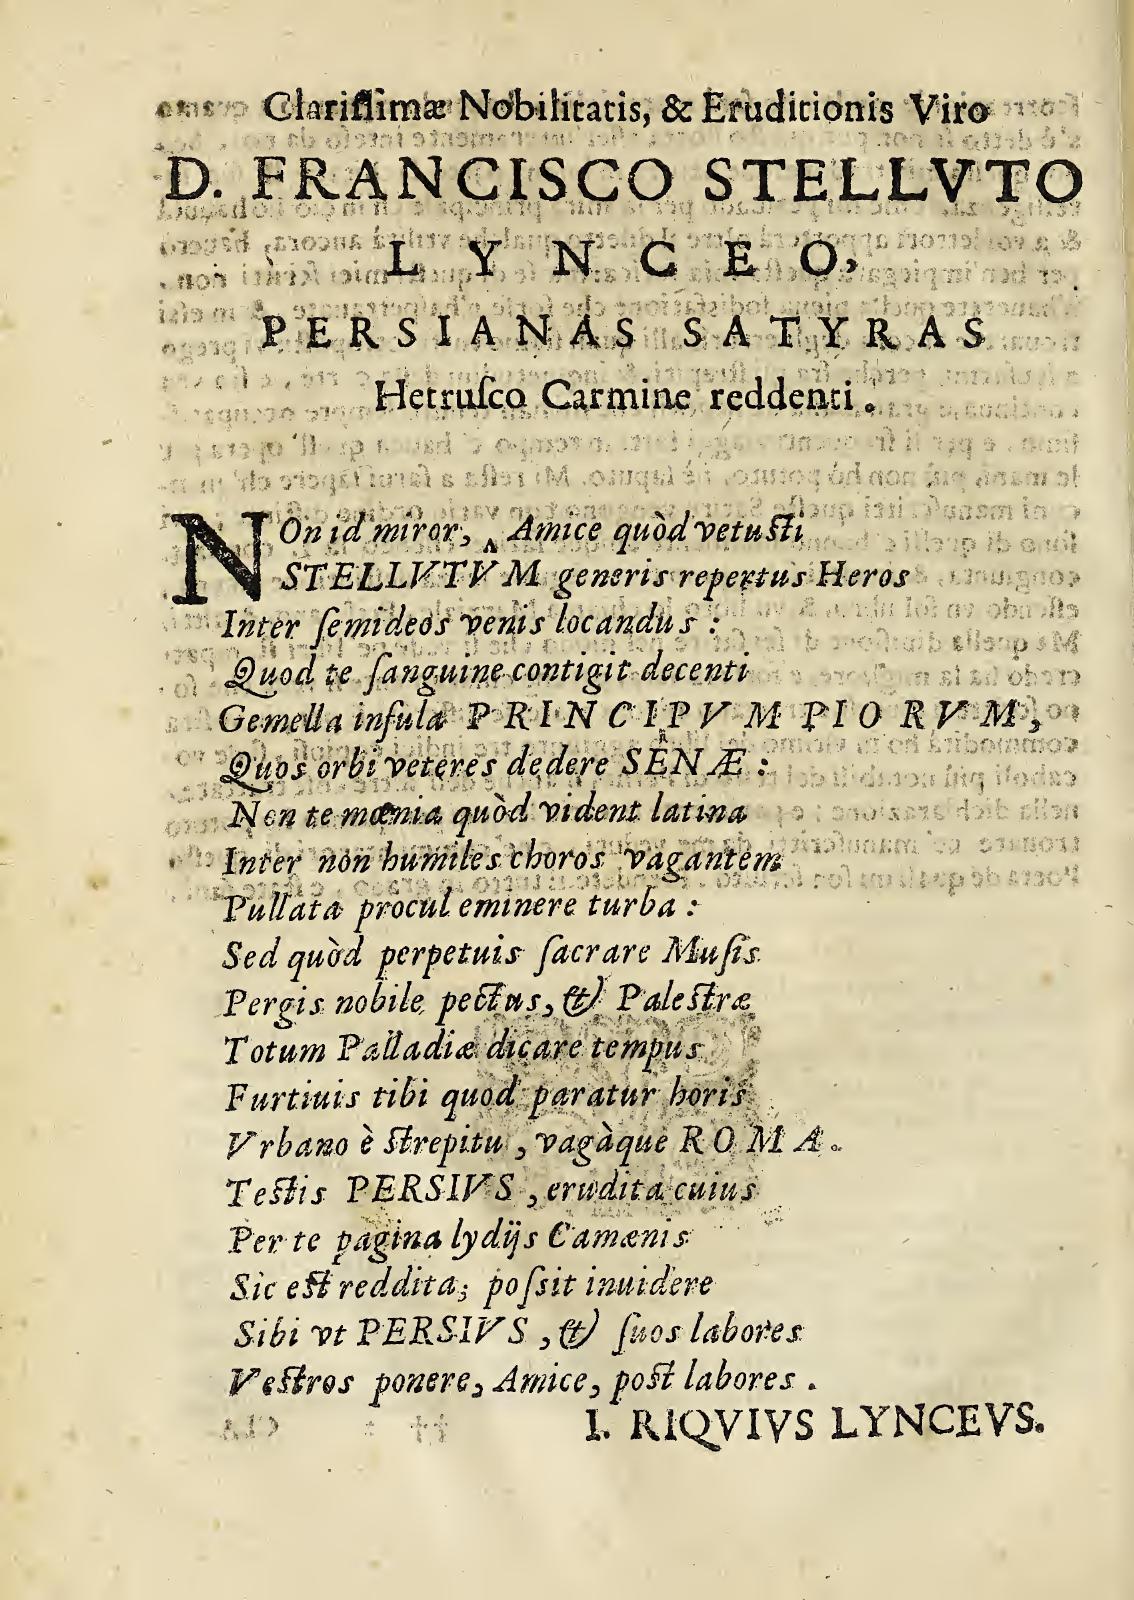 Clariſſimæ Nobilitatis, & Eruditionis Viro
D. FRANCISCO STELLVTO
LYNCEO,
PERSIANAS SATYRAS
Hetruſco Carmine reddenti.
NOn id miror, Amice quòd vetuſti
STELLVTVM generis repertus Heros
Inter ſemideos venis locandus:
Quod te ſanguine contigit decenti
Gemella inſula PRINCIPVM PIORVM,
Quos orbi veteres dedere SENÆ:
Non te mœnia quòd vident latina
Inter non humiles choros vagantem
Pullata procul eminere turba:
Sed quòd perpetuis ſacrare Muſis
Pergis nobile pectus, & Paleſtræ
Totum Palladiæ dicare tempus
Furtiuis tibi quod paratur horis
Vrbano è ſtrepitu, vagàque ROMA.
Teſtis PERSIVS, erudita cuius
Per te pagina lydijs Camænis
Sic eſt reddita; poſsit inuidere
Sibi vt PERSIVS, & ſuos labores
Veſtros ponere, Amice, poſt labores.
I. RIQVIVS LYNCEVS.